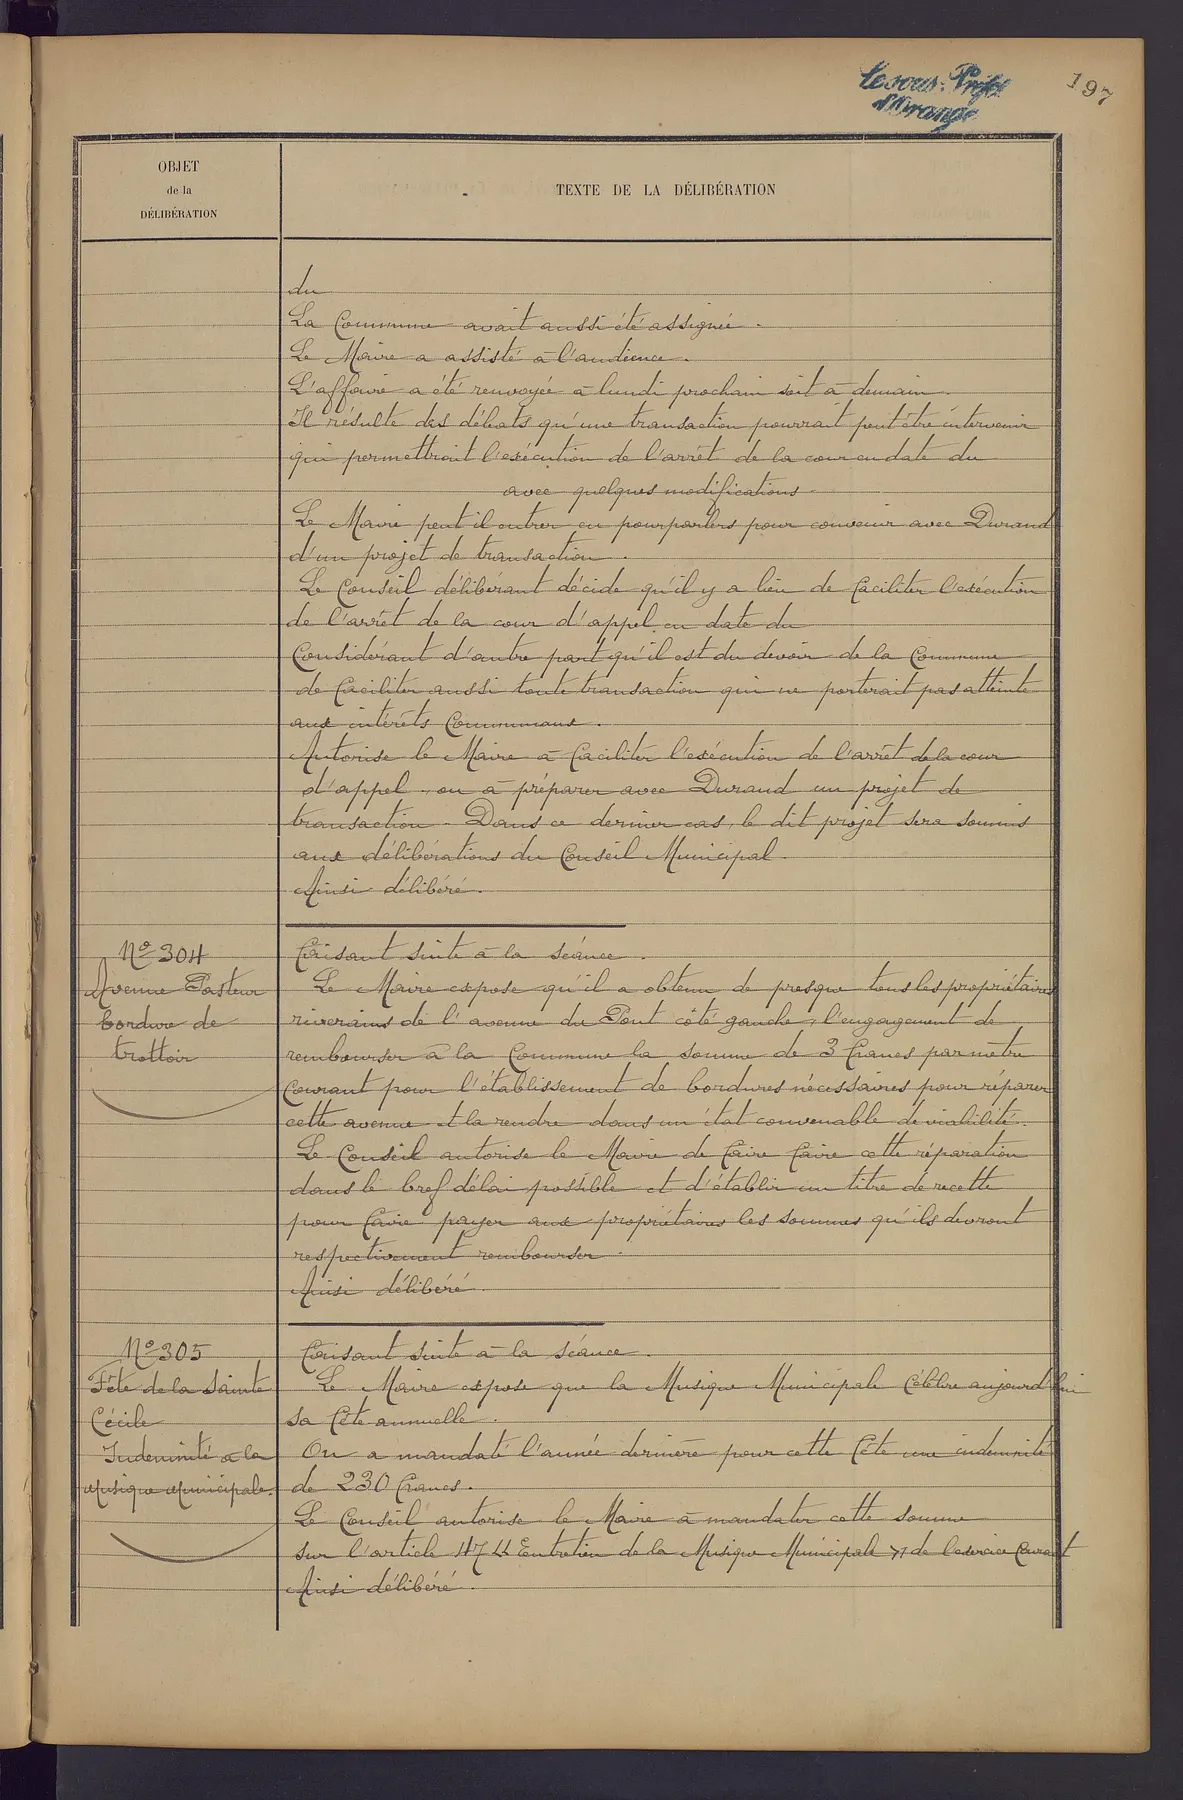 Le sous-Préfet
d'Orange
197
OBJET
de la
DÉLIBÉRATION
TEXTE DE LA DÉLIBÉRATION
du
La Commune avait aussi été assignée.
Le Maire a assisté à l'audience.
L'affaire a été renvoyée à lundi prochain soit à demain.
Il résulte des débats qu'une transaction pourrait peut être intervenir
qui permettrait l'exécution de l'arrêt de la cour en date du
avec quelques modifications.
Le Maire peut il entrer en pourparlers pour convenir avec Durand
d'un projet de transaction.
Le Conseil délibérant décide qu'il y a lieu de faciliter l'exécution
de l'arrêt de la cour d'appel en date du
Considérant d'autre part qu'il est du devoir de la Commune
de faciliter aussi toute transaction qui ne porterait pas atteinte
aux intérêts Communaux.
Autorise le Maire à faciliter l'exécution de l'arrêt de la cour
d'appel, ou à préparer avec Durand un projet de
transaction. Dans ce dernier cas, le dit projet sera soumis
aux délibérations du Conseil Municipal.
Ainsi délibéré.
Nº 304
Avenue Pasteur
bordure de
trottoir
Faisant suite à la séance.
Le Maire expose qu'il a obtenu de presque tous les propriétaires
riverains de l'avenue du Pont côté gauche, l'engagement de
rembourser à la Commune la somme de 3 francs par mètre
Courant pour l'établissement de bordures nécessaires pour réparer
cette avenue et la rendre dans un état convenable de viabilité.
Le Conseil autorise le Maire de faire faire cette réparation
dans le bref délai possible et d'établir un titre de recette
pour faire payer aux propriétaires les sommes qu'ils devront
respectivement rembourser.
Ainsi délibéré.
Nº 305
Fête de la Sainte
Cécile
Indemnité à la
Musique Municipale.
Faisant suite à la séance.
Le Maire expose que la Musique Municipale Célèbre aujourd'hui
sa fête annuelle.
On a mandaté l'année dernière pour cette fête une indemnité
de 230 francs.
Le Conseil autorise le Maire à mandater cette somme
sur l'article 47 "Entretien de la Musique Municipale" de l'exercice Courant
Ainsi délibéré.